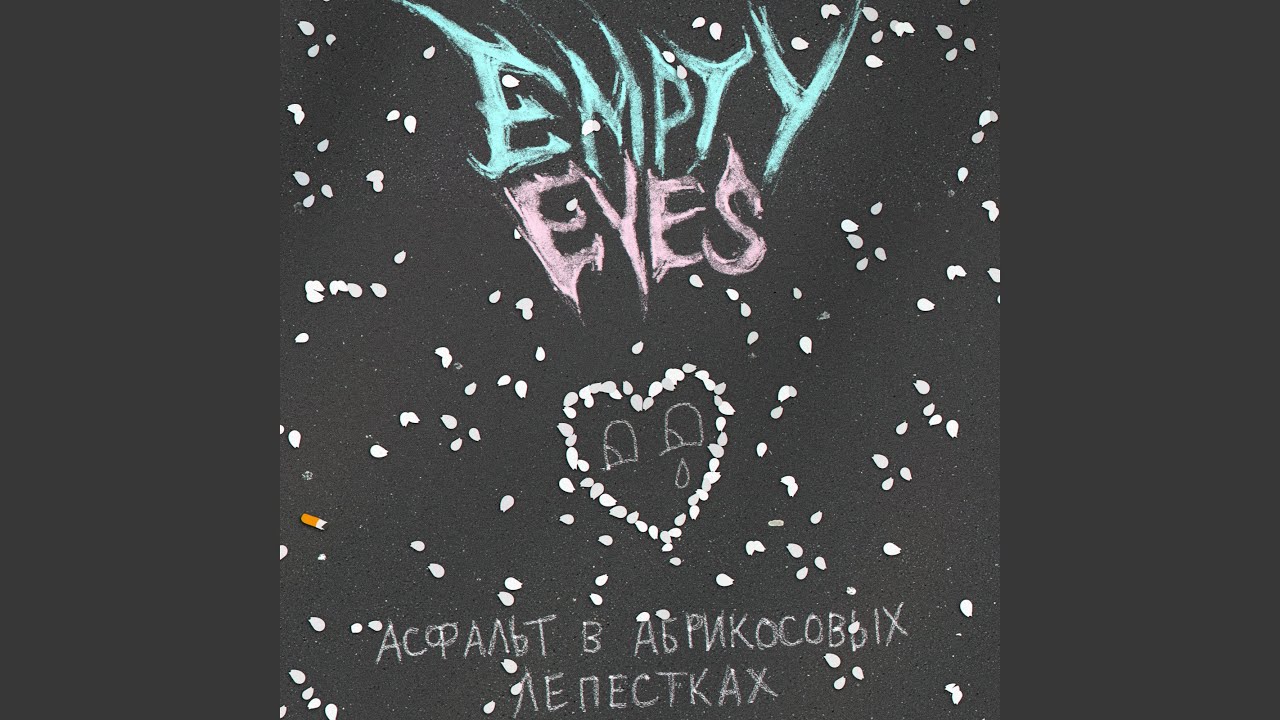 EMPTY
EYES
АСФАЛЬТ В АБРИКОСОВЫХ
ЛЕПЕСТКАХ